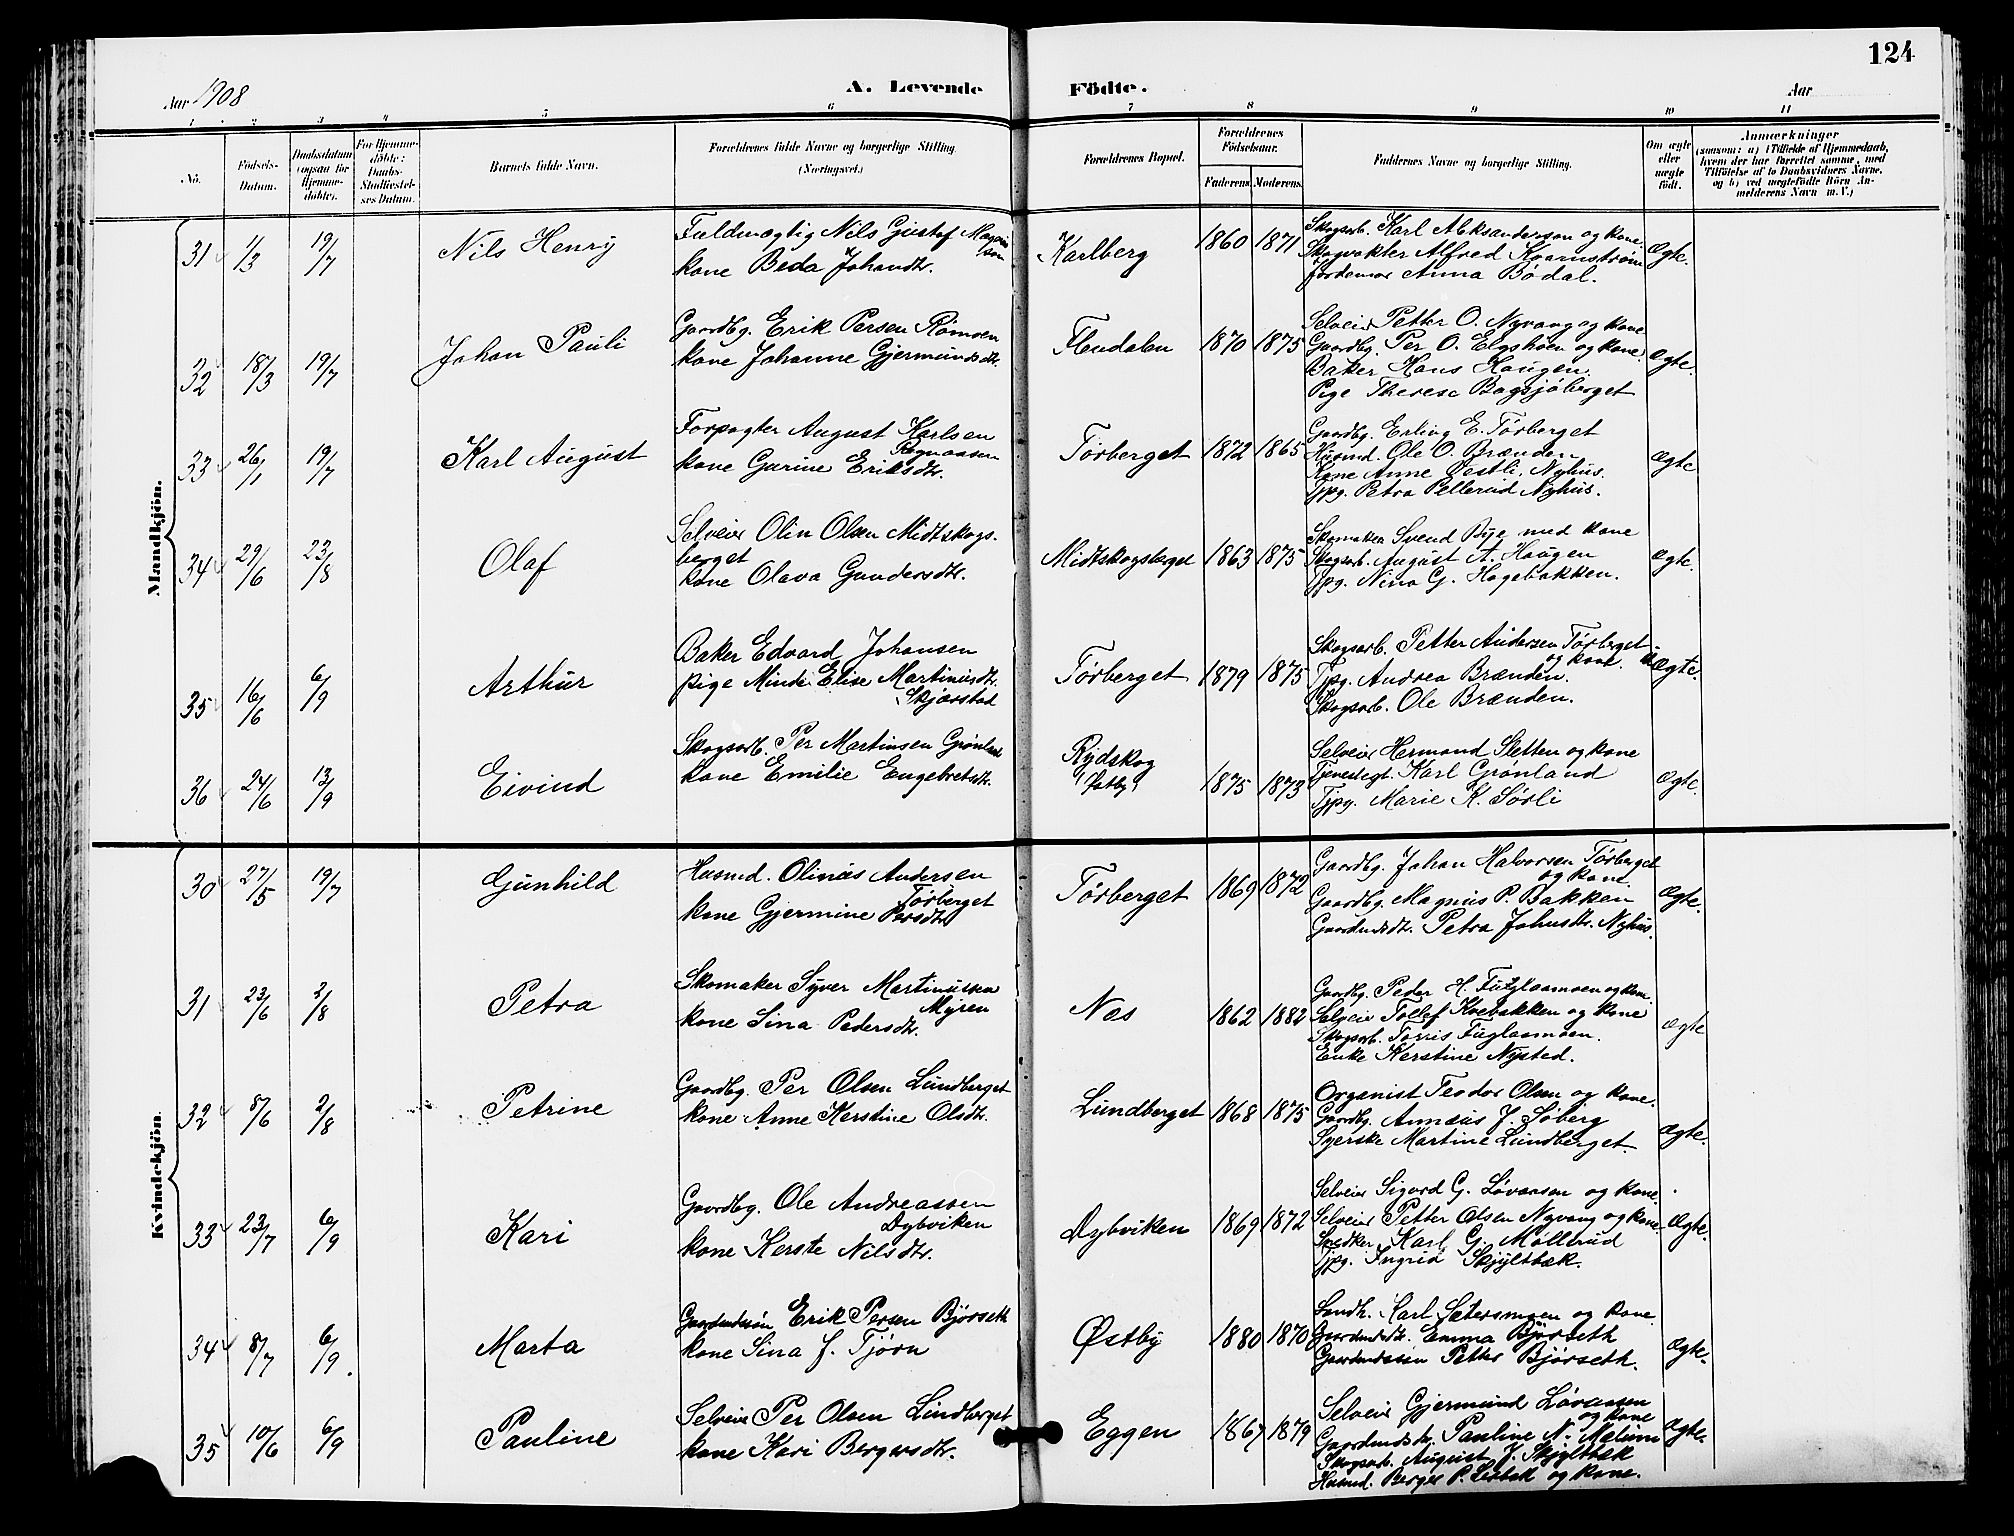 124
Aar 1908
A. Levende Födte.
Aar
1 2 3 4 5 6 7 8 9 10 11
No.
Födsels-Datum.
Daabsdatum (ogsaa for Hjemmedöbte).
For Hjemmedöbte: Daabs-Stadfæstelses Datum.
Barnets fulde Navn.
Forældrenes fulde Navne og borgerlige Stilling (Næringsvei.)
Forældrenes Bopæl.
Forældrenes Födselsaar.
Faderens. Moderens.
Faddernes Navne og borgerlige Stilling.
Om ægte eller uægte födt.
Anmærkninger
(saasom: a) i Tilfælde af Hjemmedaab,
hvem der har forrettet samme, med
Tilföielse af to Daabsvidners Navne,
og b) ved uægtefödte Börn An-
melderens Navn m. V.)
Mandkjön.
31 1/3 19/7 Nils Henry
Fuldmægtig Nils Gustaf Magnusson
kone Beda Johandtr.
Karlberg 1860 1871
Skogsarb. Karl Aleksanderson og kone.
Skogvakter Alfred Kvarnström
Jordemor Anna Bödal.
Ægte.
32 18/3 19/7 Johan Pauli
Gaardbg. Erik Persen Römoen
kone Johanne Gjermundsdtr.
Flendalen 1870 1875
Selveier Petter O. Nyvang og kone
Gaardbg. Per O. Elgshoen og kone.
Baker Hans Haugen.
Pige Therese Bagsjöberget
Ægte.
33 26/1 19/7 Karl August
Forpagter August Karlsen
kone Gurine Eriksdtr.
Törberget 1872 1865
Gaardbg. Erling E. Törberget
Husmd. Ole O. Brænden
Kone Anne Østli. Nyhus.
Tjpg. Petra Pellerud Nyhus.
Ægte
34 29/6 23/8 Olaf
Selveier Olin Olsen Midtskogs-
berget
kone Olava Gundersdtr.
Midtskogsberget 1863 1875
Skomaker Svend Bye med kone
Skogsarb. August A. Haugen
Tjpg. Nina G. Hagebakken.
Ægte.
35 16/6 6/9 Arthur
Baker Edvard Johansen
pige Minda Elise Martinusdtr.
Skjærstad
Törberget 1879 1875
Skogsarb. Petter Andersen Törberget
og kone.
Tjpg. Andrea Brænden.
Skogsarb. Ole Brænden.
Uægte.
36 24/6 13/9 Eivind
Skogsarb. Per Martinsen Grønland
kone Emilie Engebretsdtr.
Rydskog
Østby 1875 1873
Selveier Hermand Sletten og kone
Tjenestegt. Karl Grønland
Tjpg. Marie K. Sørli
Ægte.
Kvindekjön.
30 27/5 19/7 Gunhild
Husmd. Olinus Andersen
Törberget
kone Gjermine Persdtr
Törberget 1869 1872
Gaardbg. Johan Halvorsen Törberget
og kone.
Gaardbg. Magnus P. Bakken
Gaardmdstr. Petra Johnsdtr. Nyhus.
Ægte.
31 23/6 2/8 Petra
Skomaker Syver Martinussen
Myren
kone Sina Pedersdtr.
Nes 1862 1882
Gaardbg. Peder H. Fuglaamoen og kone.
Selveier Tollef Kvebakken og kone
Skogsarb. Torris Fuglaamoen.
Enke Kerstine Nysted.
Ægte
32 8/6 2/8 Petrine
Gaardbg. Per Olsen Lundberget
kone Anne Kerstine Olsdtr.
Lundberget 1868 1875
Organist Teodor Olsen og kone.
Gaardbg. Annæus J. Søberg
Syerske Martine Lundberget.
Ægte.
33 23/7 6/9 Kari
Gaardbg. Ole Andreassen
Dybviken
kone Kerste Nilsdtr.
Dybviken 1869 1872
Selveier Sigurd G. Løvaasen og kone.
Selveier Petter Olsen Nyvang og kone.
Snedker Karl G. Møllerud
Tjpg. Ingrid Skjyltbæk.
Ægte.
34 8/7 6/9. Marta
Gaardmdssön Erik Persen Björseth
kone Sina J. Tjörn
Østby 1880 1870
Landh. Karl Sætersmoen og kone
Gaardmdsdtr. Emma Björseth
Gaardmdssön Petter Björseth.
Ægte.
35 10/6 6/9 Pauline
Selveier Per Olsen Lundberget
kone Kari Bergersdtr.
Eggen 1867 1879
Selveier Gjermund Løvaasen
og kone
Gaardmdsdtr. Pauline N. Melum
Skogsarb. August J. Skjyltbæk
Husmd. Berger P. og kone.
Ægte.